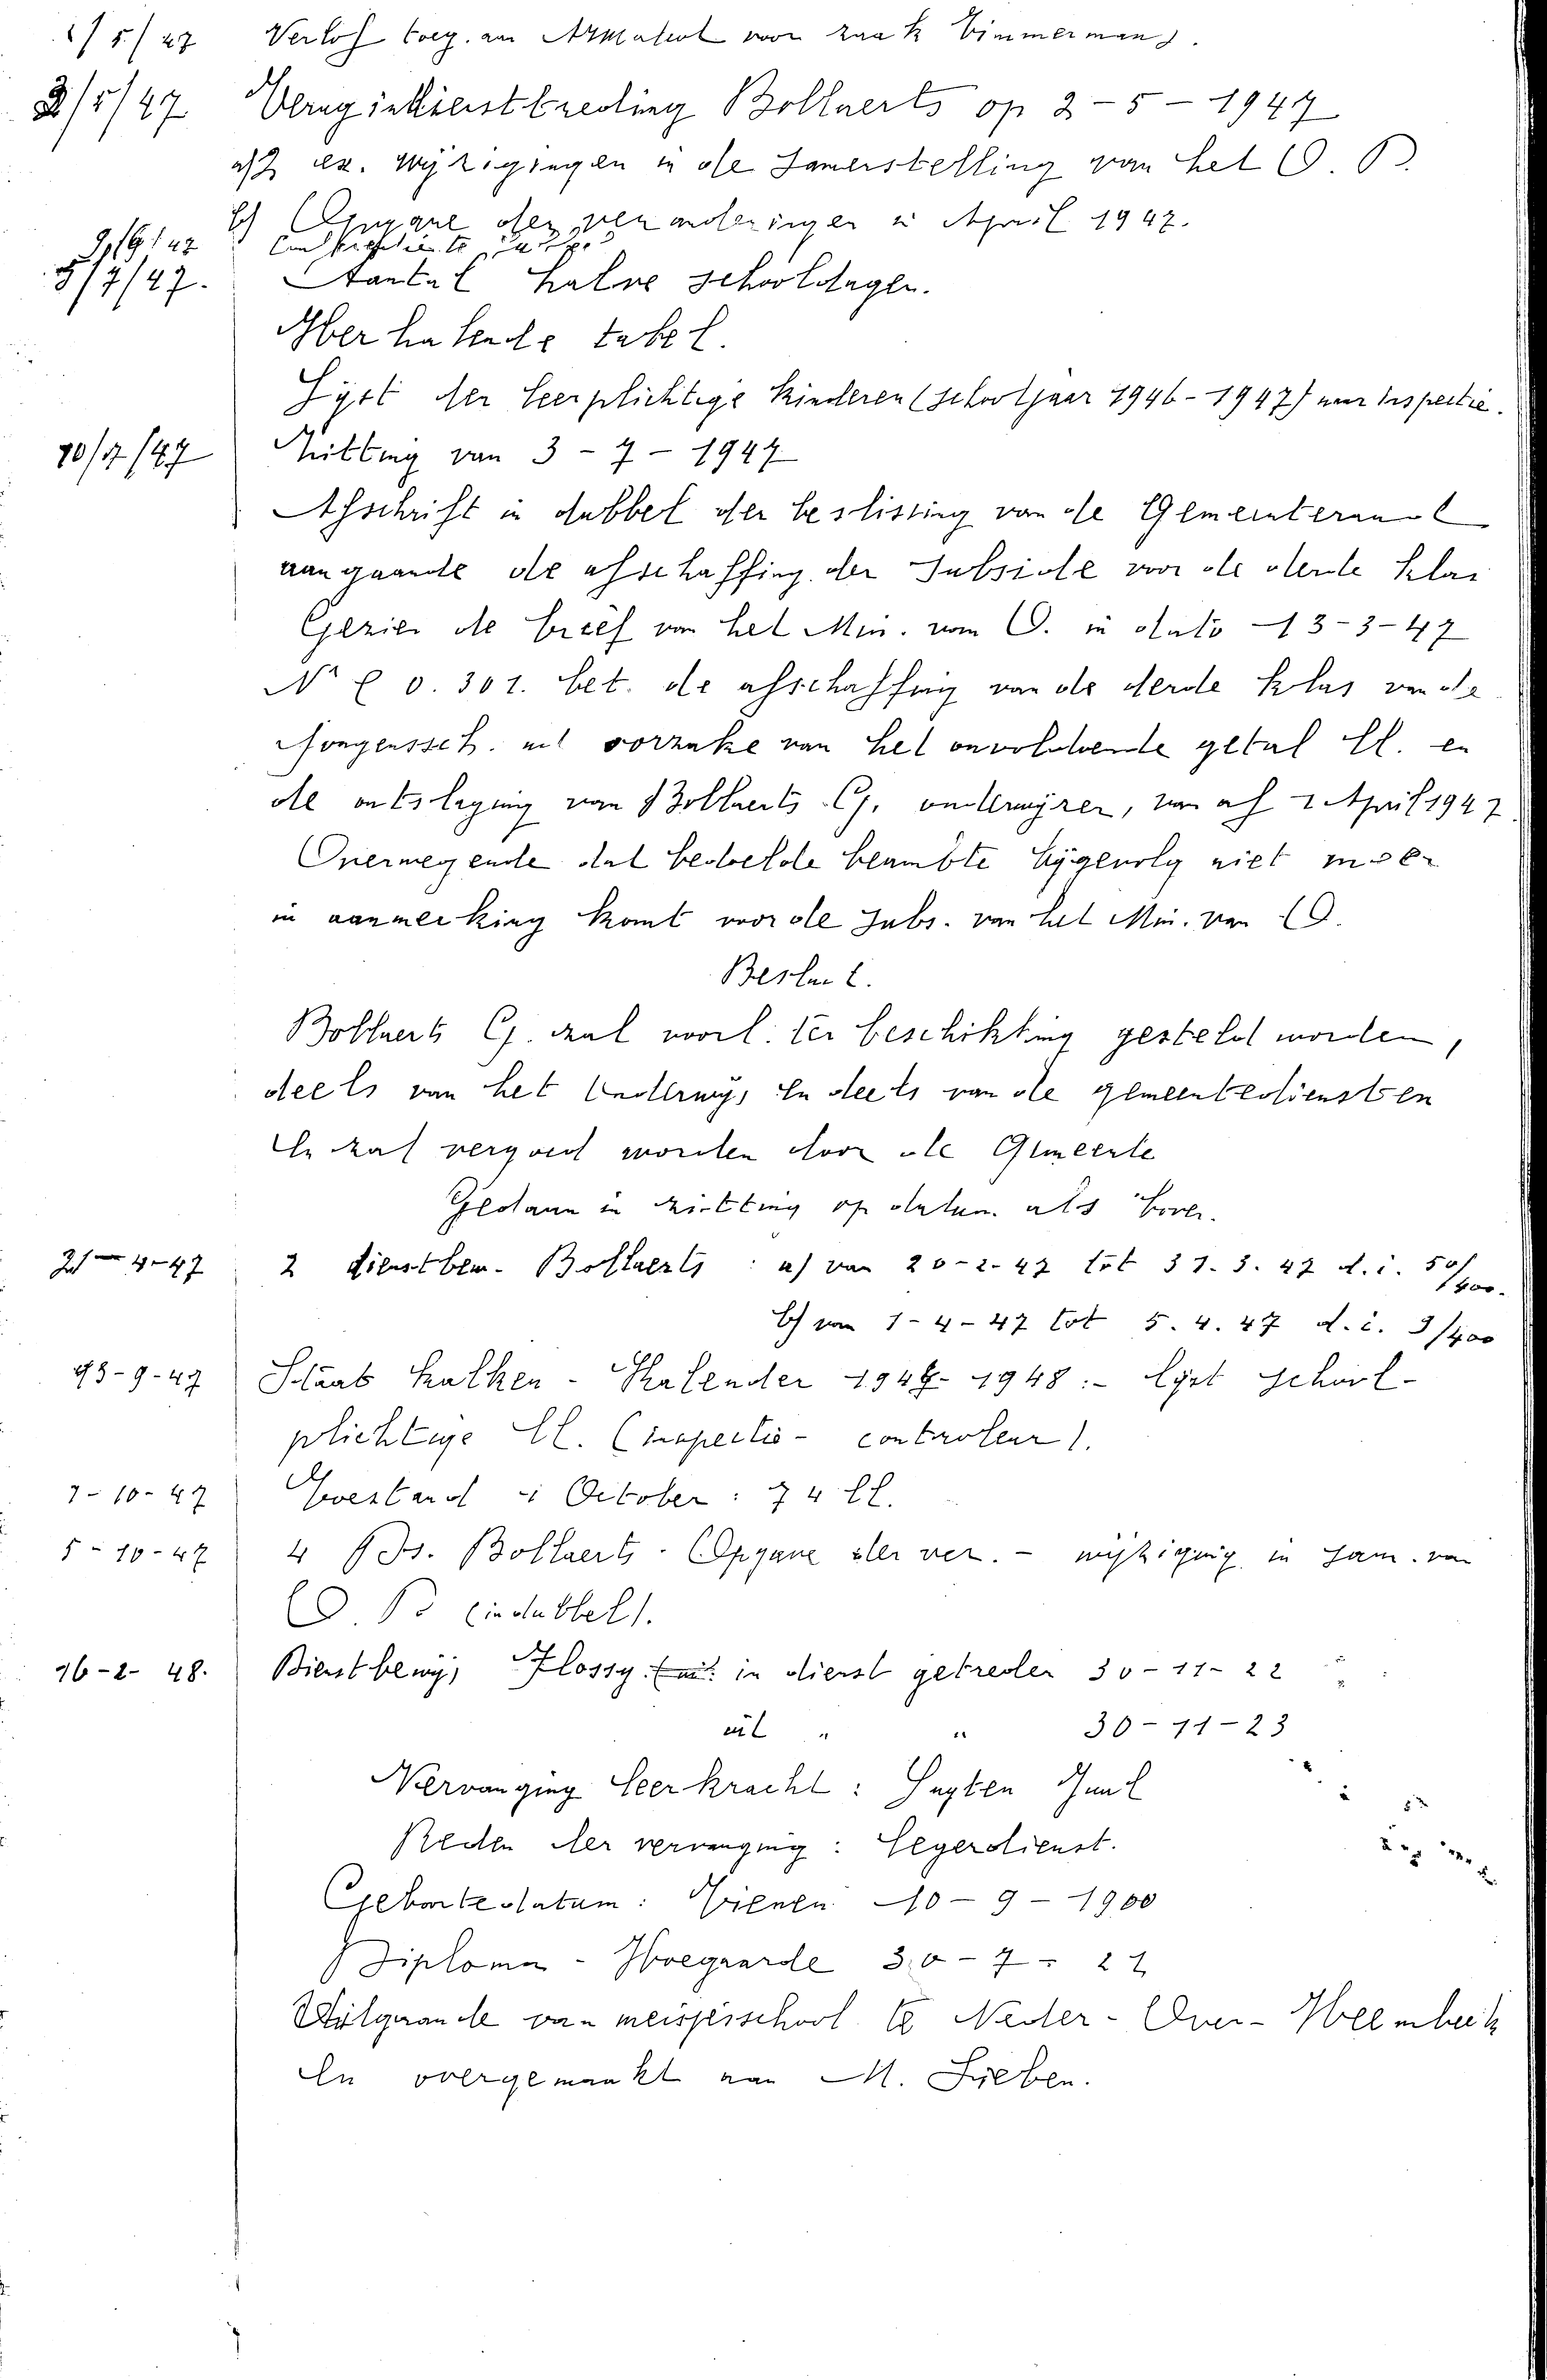 1/5/47 Verlof toeg. aan voor zaak Timmermans.
2/5/47 Terug indiensttreding Bollaerts op 2-5-1947
a) 2 ex. wijzigingen in de samenstelling van het O. P.
b) Opgave der veranderingen in April 1947.
5/7/47. Aantal halve schooldagen.
Herhalende tabel.
Lijst der leerplichtige kinderen (schooljaar 1946-1947) aan inspectie.
10/7/47 Zitting van 3-7-1947
Afschrift in dubbel der beslissing van de Gemeenteraad
aangaande de afschaffing der Subsidie voor de derde klas
Gezien de brief van het Min. van O. in dato 13-3-47
Nr 0.301. bet. de afschaffing van de derde klas van de
Jongenssch. uit oorzake van het onvoldoende getal ll. en
de ontslaging van Bollaerts G. onderwijzer, van af 1 April 1947.
Overwegende dat bedoelde beambte bijgevolg niet meer
in aanmerking komt voor de subs. van het Min. van O.
Besluit.
Bollaerts G. zal voorl. ter beschikking gesteld worden,
deels van het onderwijs en deels van de gemeentediensten
En zal vergoed worden door de Gemeente
Gedaan in zitting op datum als boven.
21-4-47 2 dienstbew. Bollaerts: a) van 20-2-47 tot 31.3.47 d.i. 50/400.
b) van 1-4-47 tot 5.4.47 d.i. 3/400
13-9-47 Staat halken - Kalender 1947-1948:- lijst school-
plichtige ll. (inspectie - controleur).
7-10-47 Toestand 1 October: 74 ll.
5-10-47 4 Ps. Bollaerts - Opgave der ver. - wijziging in sam. van
O. P. (in dubbel).
16-2-48. Dienstbewijs Flossy. in dienst getreden 30-11-22
uit " " 30-11-23
Vervanging leerkracht: Seghen Paul
Reden der vervanging: Legerdienst.
Geboortedatum: Tienen 10-9-1900
Diploma - Hoegaarde 30-7-21
Uitgaande van meisjesschool te Neder-Over-Heembeek
En overgemaakt aan M. Lieben.